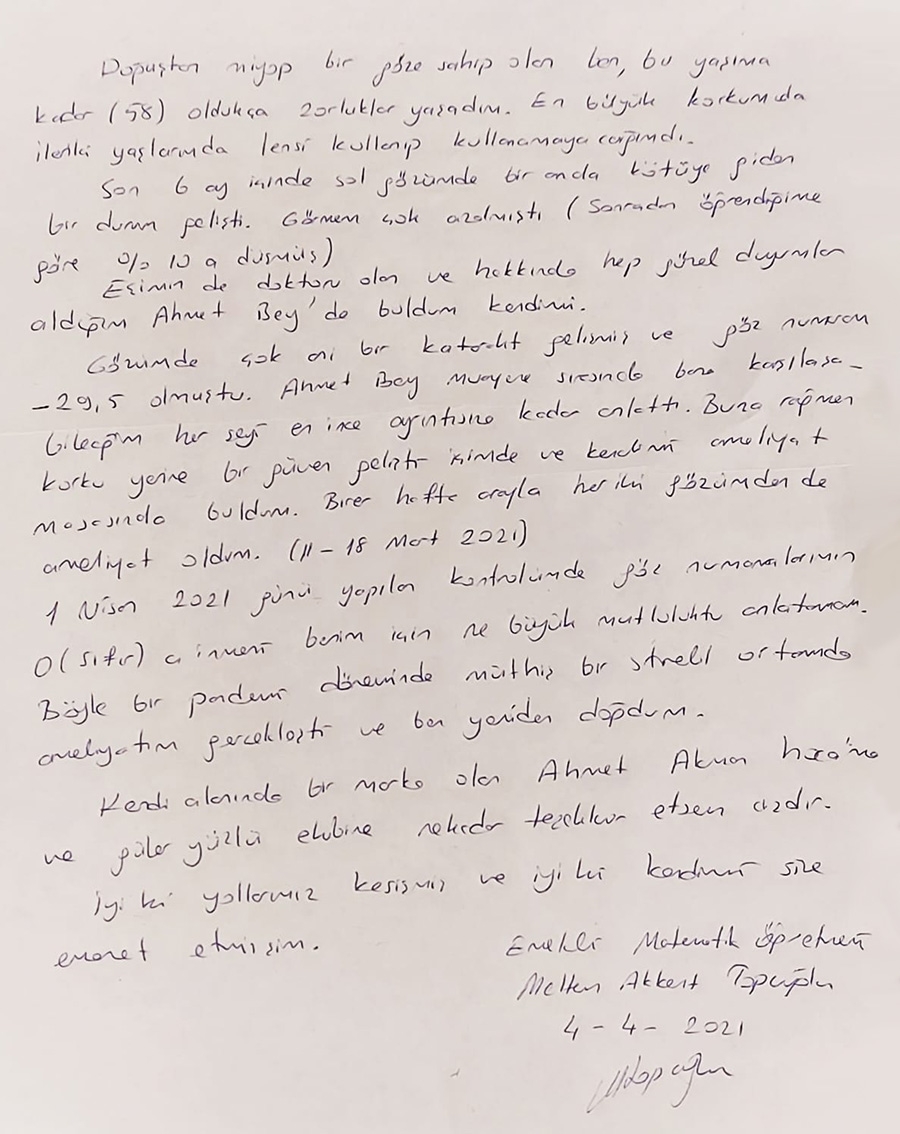 Doğuştan miyop bir göze sahip olan ben, bu yaşıma
kadar (58) oldukça zorluklar yaşadım. En büyük korkumda
ileriki yaşlarımda lensi kullanıp kullanamayacağımdı.
Son 6 ay içinde sol gözümde bir anda kötüye giden
bir durum gelişti. Görmem çok azalmıştı (Sonradan öğrendiğime
göre %10 a düşmüş)
Eşimin de doktoru olan ve hakkında hep güzel duyumlar
aldığım Ahmet Bey'de buldum kendimi.
Gözümde çok ani bir katarakt gelişmiş ve göz numaram
-29,5 olmuştu. Ahmet Bey muayene sırasında bana karşılaşa-
bileceğim her şeyi en ince ayrıntısına kadar anlattı. Buna rağmen
korku yerine bir güven gelişti içimde ve kendimi ameliyat
masasında buldum. Birer hafta arayla her iki gözümden de
ameliyat oldum. (11 - 18 Mart 2021)
1 Nisan 2021 günü yapılan kontrolümde göz numaralarımın
0 (sıfır) a inmesi benim için ne büyük mutluluktu anlatamam.
Böyle bir pandemi döneminde müthiş bir steril ortamda
ameliyatım gerçekleşti ve ben yeniden doğdum.
Kendi alanında bir marka olan Ahmet Akman hoca'ma
ve güler yüzlü ekibine nekadar teşekkür etsem azdır.
İyi ki yollarımız kesişmiş ve iyi ki kendimi size
emanet etmişim.
Emekli Matematik Öğretmeni
Meltem Akkent Topçuoğlu
4 - 4 - 2021